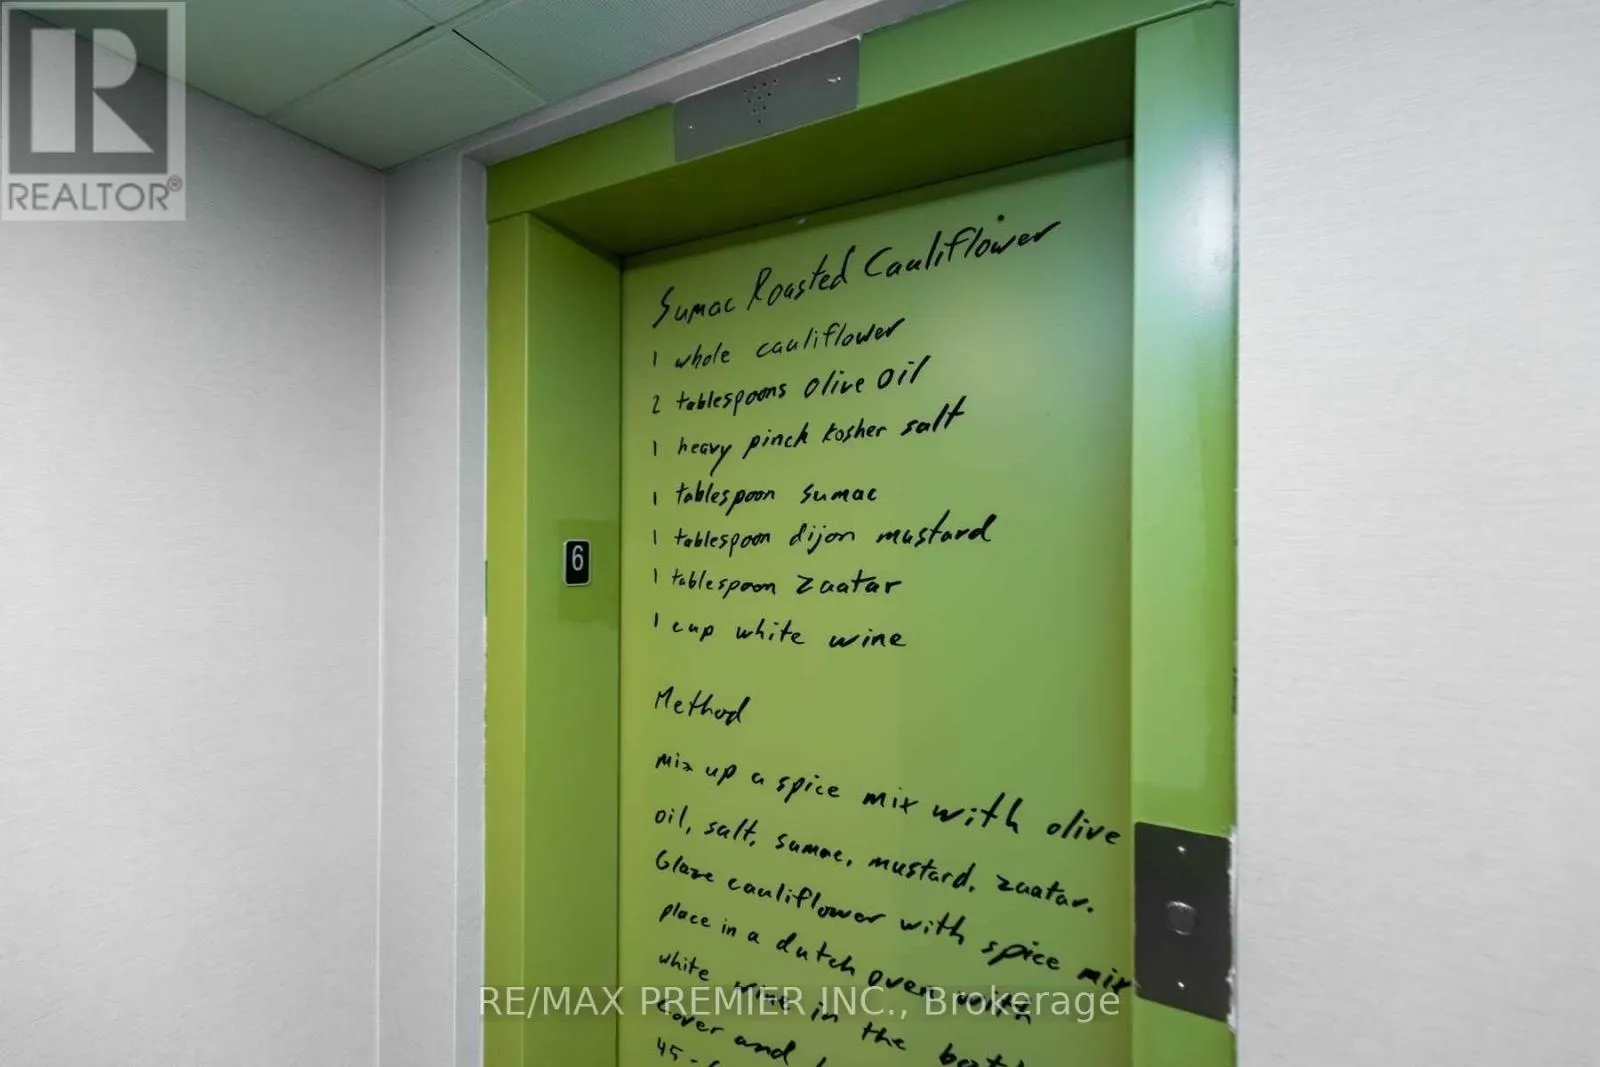 REALTOR®
Sumac Roasted Cauliflower
1 whole cauliflower
2 tablespoons olive oil
1 heavy pinch kosher salt
1 tablespoon sumac
1 tablespoon dijon mustard
1 tablespoon zaatar
1 cup white wine
6
Method
mix up a spice mix with olive
oil, salt, sumac, mustard, zaatar.
Glaze cauliflower with spice mix
place in a dutch oven with
white wine in the
cover and
45-
RE/MAX PREMIER INC., Brokerage